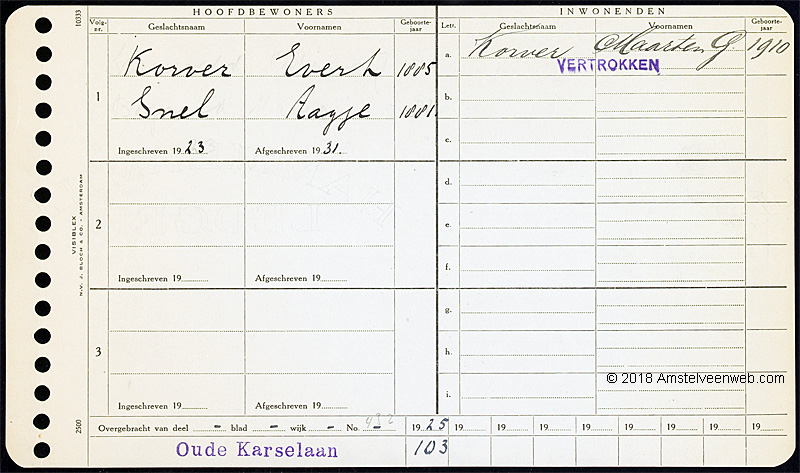 HOOFDBEWONERS INWONENDEN
Volg-nr. Geslachtsnaam Voornamen Geboorte-jaar Lett. Geslachtsnaam Voornamen Geboorte-jaar
1
Korver Evert 1885
Snel Aagje 1881
Ingeschreven 1923 Afgeschreven 1931.
a. Korver Maarten G. 1910
VERTROKKEN
b.
c.
2
Ingeschreven 19 Afgeschreven 19
d.
e.
f.
3
Ingeschreven 19 Afgeschreven 19
g.
h.
i.
© 2018 Amstelveenweb.com
Overgebracht van deel - blad - wijk - No. - 1925 19 19 19 19 19 19 19
Oude Karselaan 103
10333
VISIBLEX
N.V. J. BLOCH & CO. - AMSTERDAM
2500